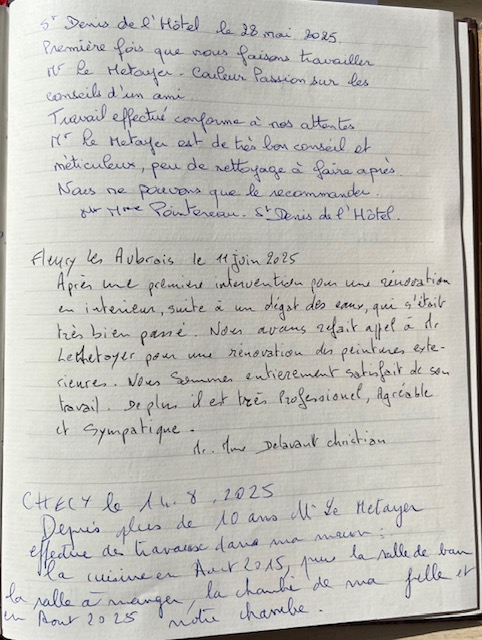 St Denis de l'Hôtel le 28 mai 2025
Première fois que nous faisons travailler
Mr Le Metayer - Couleur Passion sur les
conseils d'un ami
Travail effectué conforme à nos attentes
Mr Le Metayer est de très bon conseil et
méticuleux, peu de nettoyage à faire après.
Nous ne pouvons que le recommander.
Mme Pointereau - St Denis de l'Hôtel.
Fleury les Aubrais le 11 juin 2025
Après une première intervention pour une rénovation
en interieur, suite à un dégat des eaux, qui s'était
très bien passé. Nous avons refait appel à Mr
LeMetayer pour une rénovation des peintures exte-
rieures. Nous Sommes entierement satisfait de son
travail. De plus il est très Professionel, Agréable
et Sympatique.
Mr. Mme Delavault christian
CHECY le 14.8.2025
Depuis plus de 10 ans Mr Le Metayer
effectue des travaux dans ma maison :
la cuisine en Aout 2015, puis la salle de bain
la salle à manger, la chambre de ma fille et
en Aout 2025 notre chambre.